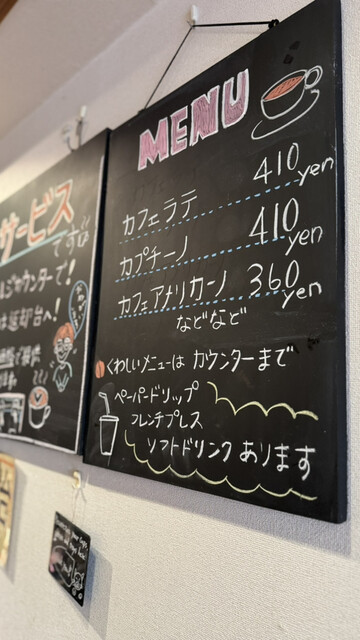 MENU
カフェラテ 410yen
カプチーノ 410yen
カフェアメリカーノ 360yen
などなど
くわしいメニューは カウンターまで
ペーパードリップ
フレンチプレス
ソフトドリンク あります
サービス
です
カウンターで!
は返却台へ!